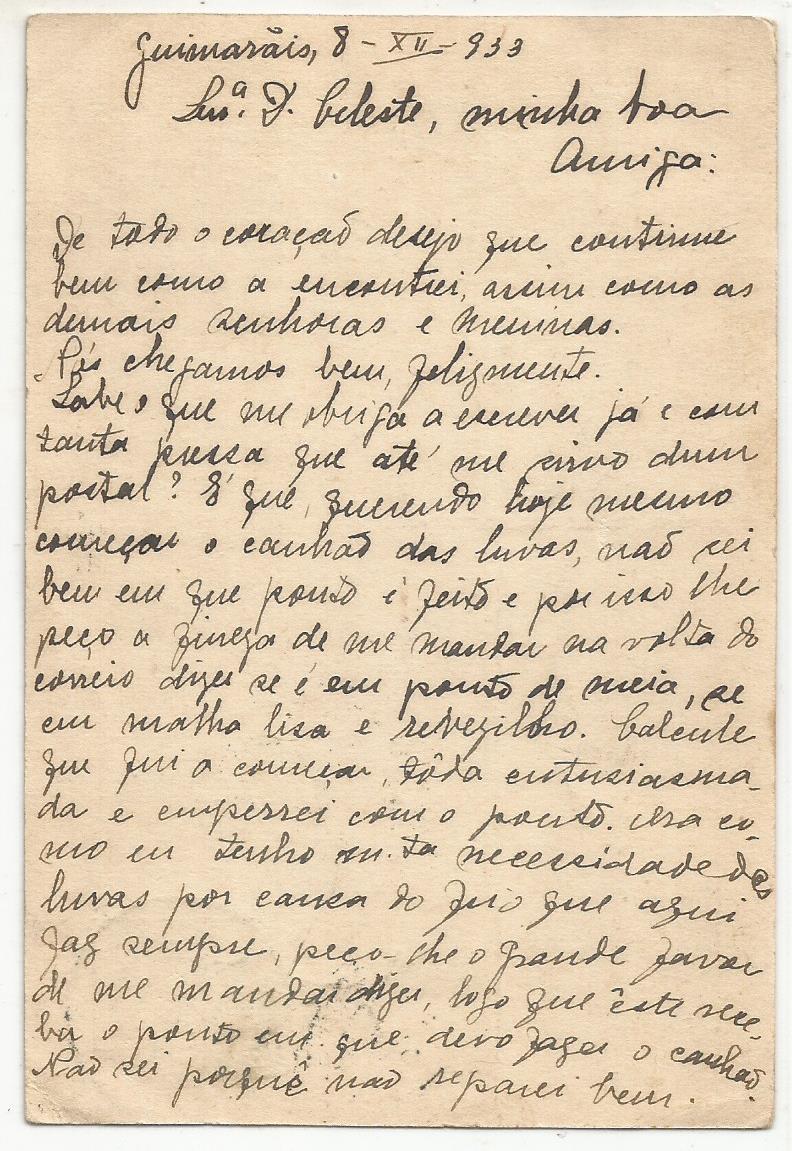 Guimarãis, 8 - XII - 933
Snrª. D. Celeste, minha boa
Amiga:
De todo o coração desejo que continue
bem como a encontrei, assim como as
demais senhoras e meninas.
Nós chegamos bem, felizmente.
Sabe o que me obriga a escrever já e com
tanta pressa que até me sirvo dum
postal? É que, querendo hoje mesmo
começar o canhão das luvas, não sei
bem em que ponto é feito e por isso lhe
peço a fineza de me mandar na volta do
correio dizer se é em ponto de meia, se
em malha lisa e revezilho. Calcule
que fui a começar, tôda entusiasma-
da e emperrei com o ponto. Ora co-
mo eu tenho m.ta necessidade das
luvas por causa do frio que aqui
faz sempre, peço-lhe o grande favor
de me mandar dizer, logo que êste rece-
ba o ponto em que devo fazer o canhão.
Não sei porquê não reparei bem.